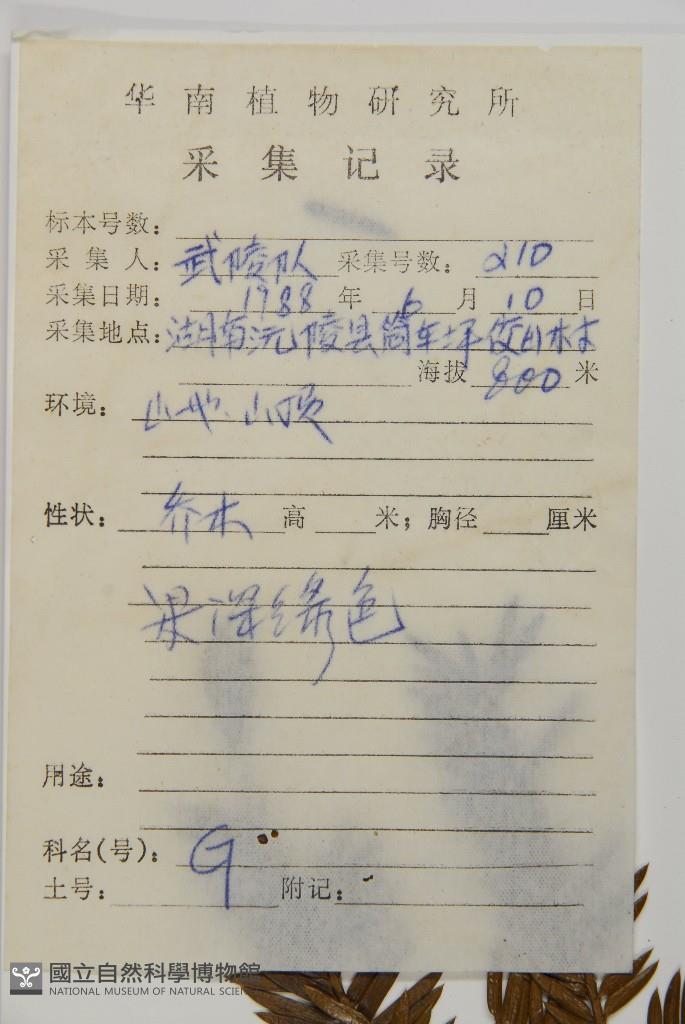 华南植物研究所
采集记录
标本号数：
采集人：武陵队 采集号数：210
采集日期：1988年6月10日
采集地点：湖南沅陵县筒车坪 村
海拔 800 米
环境：山地.山顶
性状：乔木 高 米；胸径 厘米
果深绿色
用途：
科名(号)：G
土号： 附记：
國立自然科學博物館
NATIONAL MUSEUM OF NATURAL SCIEN